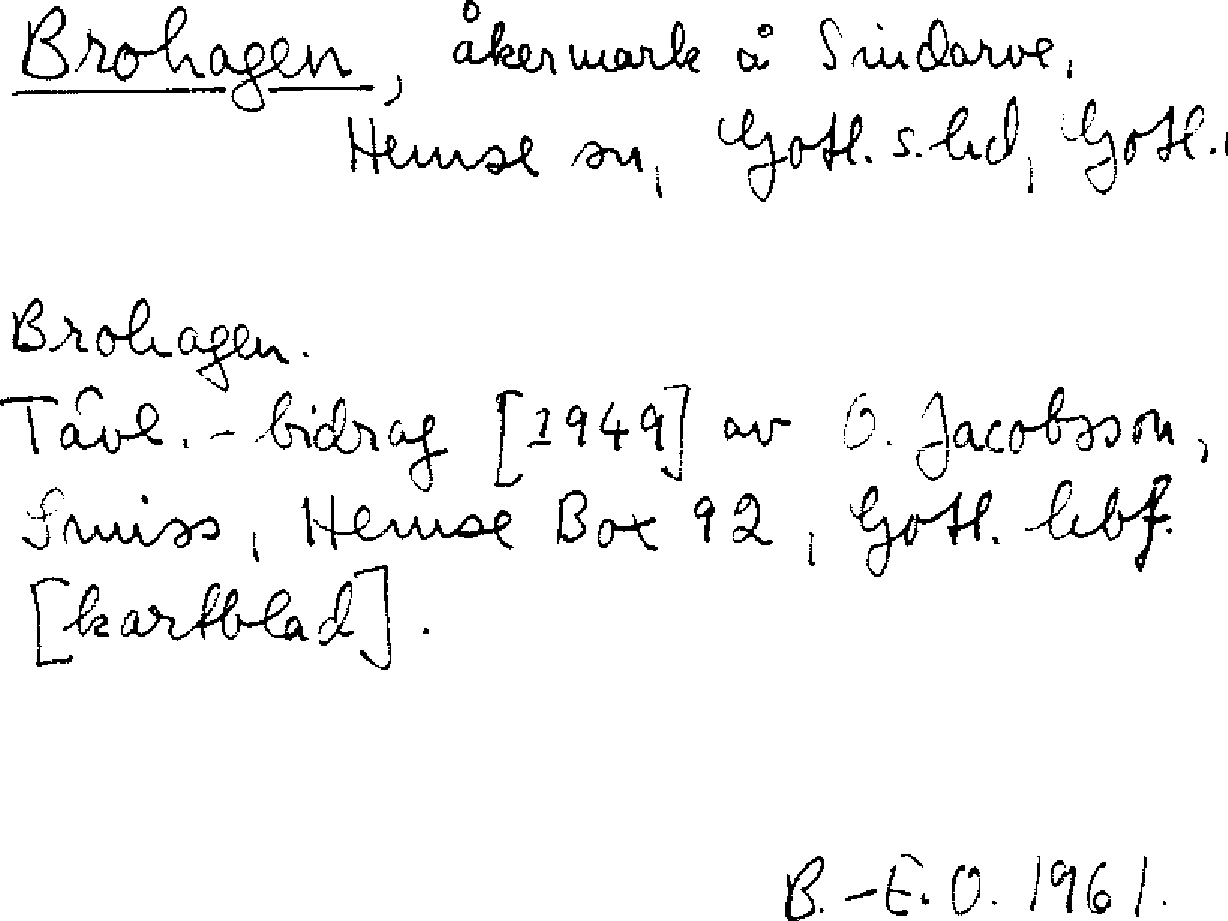 Brohagen, åkermark å Sindarve,
Hemse sn, Gotl. s. hd, Gotl.,
Brohagen.
Tävl.-bidrag [1949] av O. Jacobsson,
Smiss, Hemse Box 92, Gotl. hbf.
[kartblad].
B.-E.O. 1961.